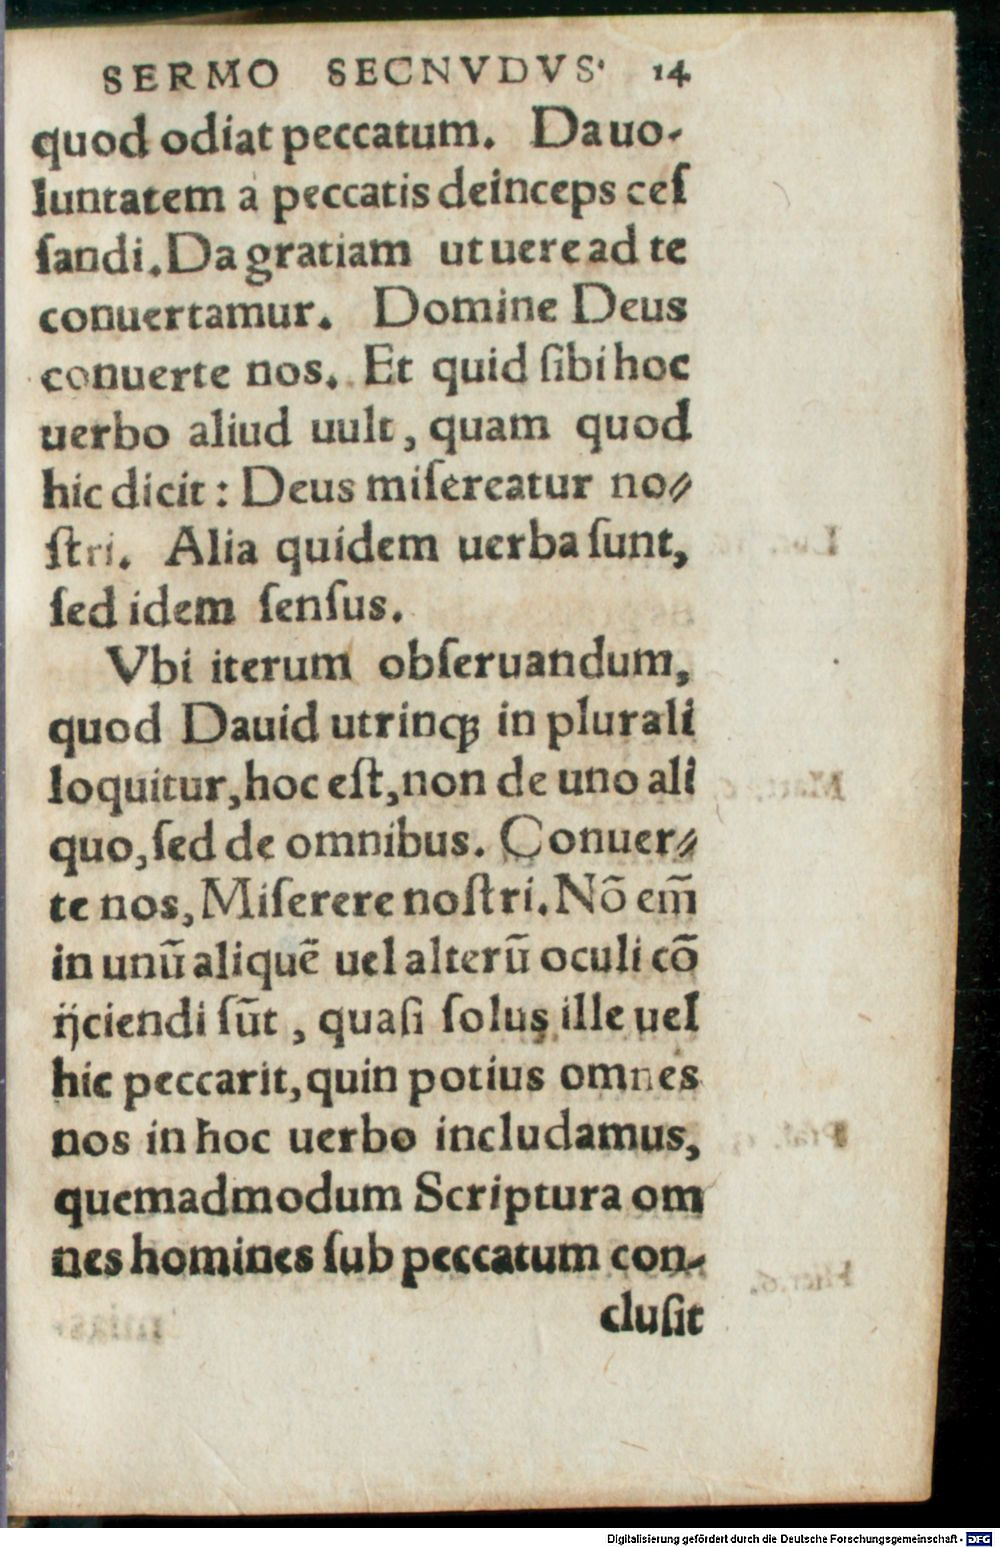 SERMO SECNVDVS· 14
quod odiat peccatum. Da uo-
luntatem à peccatis deinceps ceſ
ſandi. Da gratiam ut uere ad te
conuertamur. Domine Deus
conuerte nos. Et quid ſibi hoc
uerbo aliud uult, quam quod
hic dicit: Deus miſereatur no⸗
ſtri. Alia quidem uerba ſunt,
ſed idem ſenſus.
Vbi iterum obſeruandum,
quod Dauid utrinqꝫ in plurali
loquitur, hoc eſt, non de uno ali
quo, ſed de omnibus. Conuer⸗
te nos, Miſerere noſtri. Nõ em̃
in unũ aliquẽ uel alterũ oculi cõ
ijciendi ſũt, quaſi ſolus ille uel
hic peccarit, quin potius omnes
nos in hoc uerbo includamus,
quemadmodum Scriptura om
nes homines ſub peccatum con-
cluſit
Digitalisierung gefördert durch die Deutsche Forschungsgemeinschaft - DFG